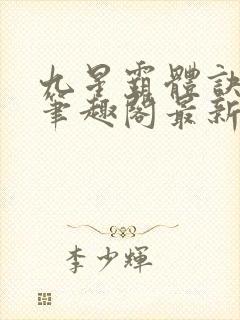 九星霸體訣
筆趣閣最新
李少輝